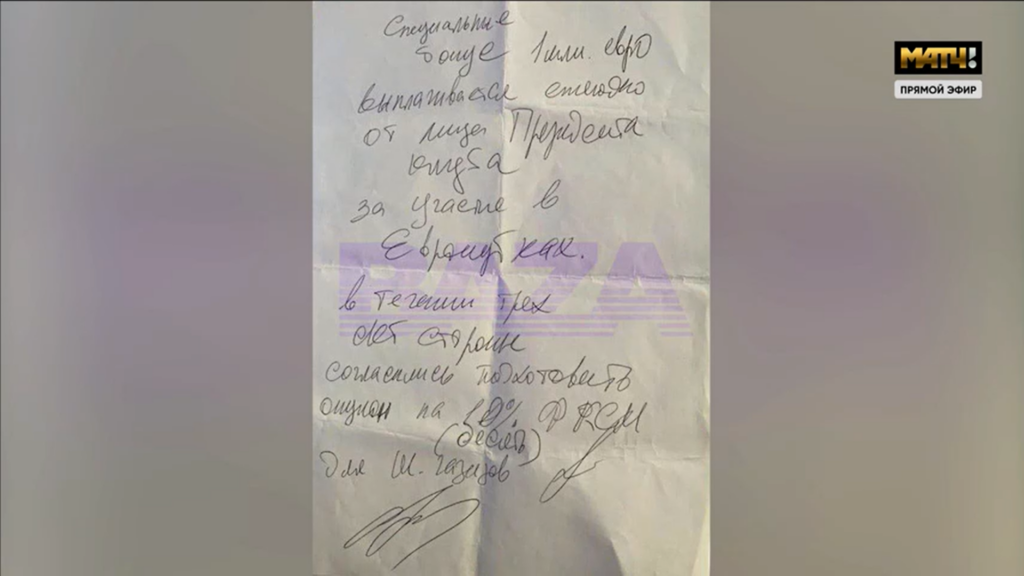 Специальные
бонус 1 млн. евро
выплачивается ежегодно
от лица Президента
клуба
за участие в
Еврокубках.
в течении трех
лет стороны
согласились подготовить
опцион на 10% ФКСМ
(десять)
для Ш. Газизов
BAZA
МАТЧ!
ПРЯМОЙ ЭФИР